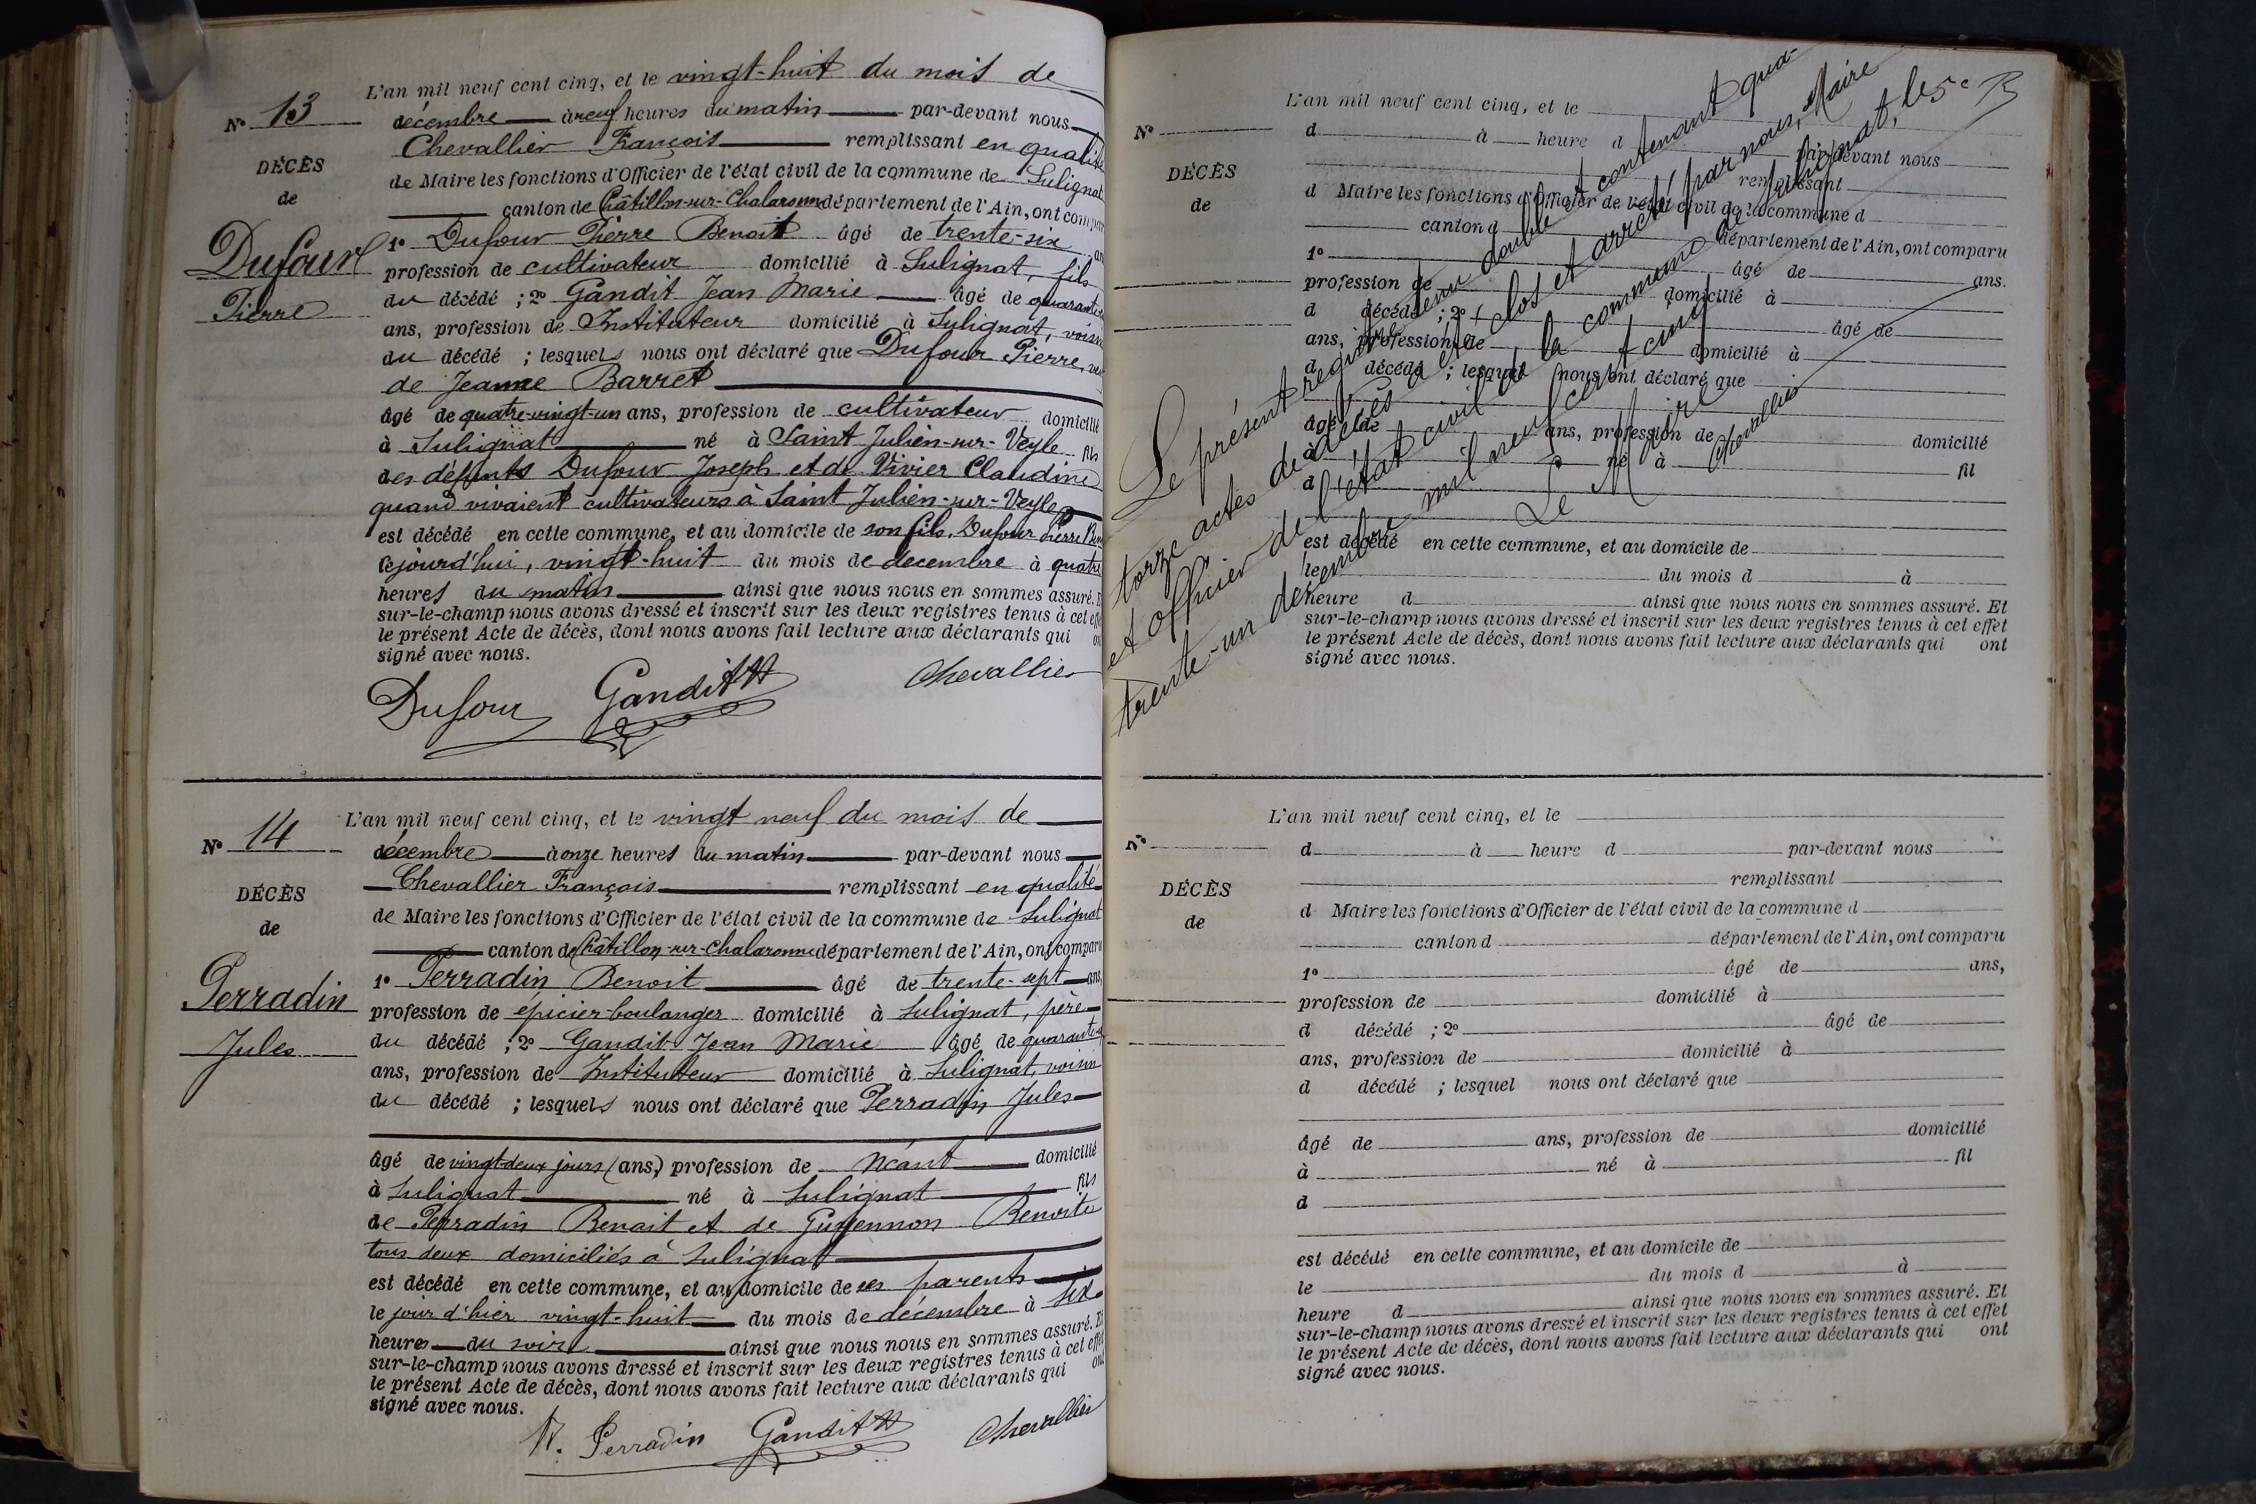 L'an mil neuf cent cinq, et le vingt-huit du mois de
N° 13
décembre à neuf heures du matin par-devant nous
Chevallier François remplissant en qualité
DÉCÈS
de Maire les fonctions d'Officier de l'état civil de la commune de Sulignat
de
canton de Châtillon-sur-Chalaronne département de l'Ain, ont comparu
Dufour
1° Dufour Pierre Benoit âgé de trente-six ans
profession de cultivateur domicilié à Sulignat, fils
Pierre
du décédé ; 2° Gandit Jean Marie âgé de quarante
ans, profession de Instituteur domicilié à Sulignat, voisin
du décédé ; lesquels nous ont déclaré que Dufour Pierre,
de Jeanne Barret
âgé de quatre-vingt-un ans, profession de cultivateur domicilié
à Sulignat né à Saint Julien-sur-Veyle fils
des défunts Dufour Joseph et de Vivier Claudine
quand vivaient cultivateurs à Saint Julien-sur-Veyle
est décédé en cette commune, et au domicile de son fils, Dufour Pierre
ce jourd'hui, vingt-huit du mois de décembre à quatre
heures du matin ainsi que nous nous en sommes assuré.
sur-le-champ nous avons dressé et inscrit sur les deux registres tenus à cet effet
le présent Acte de décès, dont nous avons fait lecture aux déclarants qui
signé avec nous.
Dufour Gandit Chevallier
L'an mil neuf cent cinq, et le vingt neuf du mois de
N° 14
décembre à onze heures du matin par-devant nous
Chevallier François remplissant en qualité
DÉCÈS
de Maire les fonctions d'Officier de l'état civil de la commune de Sulignat
de
canton de Châtillon-sur-Chalaronne département de l'Ain, ont comparu
Perradin
1° Perradin Benoit âgé de trente-sept ans,
profession de épicier boulanger domicilié à Sulignat, père
Jules
du décédé ; 2° Gandit Jean Marie âgé de quarante
ans, profession de Instituteur domicilié à Sulignat, voisin
du décédé ; lesquels nous ont déclaré que Perradin Jules
âgé de vingt-deux jours (ans,) profession de néant domicilié
à Sulignat né à Sulignat fils
de Perradin Benoit et de Guyennon Benoite
tous deux domiciliés à Sulignat
est décédé en cette commune, et au domicile de ses parents
le jour d'hier vingt-huit du mois de décembre à six
heures du soir ainsi que nous nous en sommes assuré. Et
sur-le-champ nous avons dressé et inscrit sur les deux registres tenus à cet effet
le présent Acte de décès, dont nous avons fait lecture aux déclarants qui ont
signé avec nous.
Perradin Gandit Chevallier
L'an mil neuf cent cinq, et le
N°
d à heure d par-devant nous
DÉCÈS
remplissant
de
d Maire les fonctions d'Officier de l'état civil de la commune d
canton d département de l'Ain, ont comparu
1° âgé de ans.
profession de domicilié à
d décédé ; 2° âgé de
ans, profession de domicilié à
d décédé ; lesquel nous ont déclaré que
âgé de ans, profession de domicilié
à né à fil
d
est décédé en cette commune, et au domicile de
le du mois d à
heure d ainsi que nous nous en sommes assuré. Et
sur-le-champ nous avons dressé et inscrit sur les deux registres tenus à cet effet
le présent Acte de décès, dont nous avons fait lecture aux déclarants qui ont
signé avec nous.
Le présent registre tenu double et contenant qua-
torze actes de décès a été clos et arrêté par nous, Maire
et officier de l'état civil de la commune de Sulignat, le
trente-un décembre mil neuf cent cinq
Le Maire
Chevallier
L'an mil neuf cent cinq, et le
N°
d à heure d par-devant nous
remplissant
DÉCÈS
d Maire les fonctions d'Officier de l'état civil de la commune d
de
canton d département de l'Ain, ont comparu
1° âgé de ans,
profession de domicilié à
d décédé ; 2° âgé de
ans, profession de domicilié à
d décédé ; lesquel nous ont déclaré que
âgé de ans, profession de domicilié
à né à fil
d
est décédé en cette commune, et au domicile de
le du mois d à
heure d ainsi que nous nous en sommes assuré. Et
sur-le-champ nous avons dressé et inscrit sur les deux registres tenus à cet effet
le présent Acte de décès, dont nous avons fait lecture aux déclarants qui ont
signé avec nous.